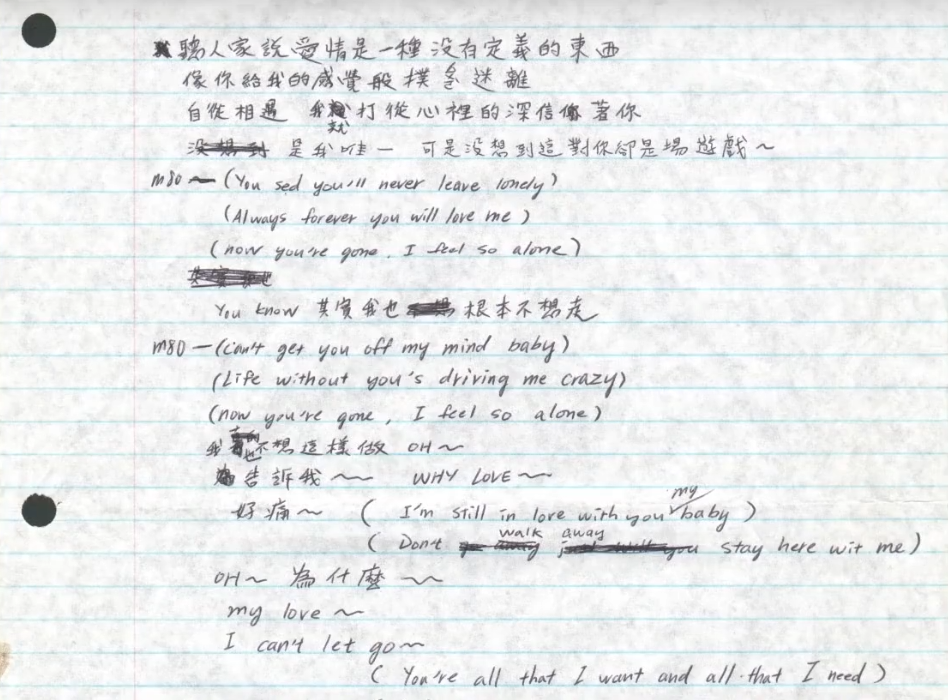 聽人家說愛情是一種沒有定義的東西
像你給我的感覺般撲朔迷離
自從相遇 我就打從心裡的深信著你
沒想到 是我唯一 可是沒想到這對你卻是場遊戲~
m80 ~ (You sed you'll never leave lonely)
(Always forever you will love me)
(now you're gone, I feel so alone)
You know 其實我也 根本不想走
m80 — (Can't get you off my mind baby)
(Life without you's driving me crazy)
(now you're gone, I feel so alone)
我也不想這樣做 OH~
告訴我~~ WHY LOVE~~
好痛~ ( I'm still in love with you my baby )
( Don't walk away stay here wit me )
OH~ 為什麼 ~~
my love ~
I can't let go~
( You're all that I want and all that I need )